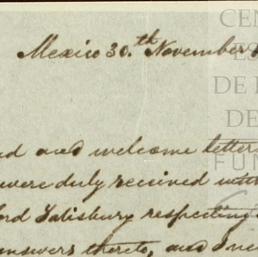 CEN
ES
DE
DE
FUN
Mexico 30.th November
and welcome letter
were duly received with
ord Salisbury respecting
answers thereto, and